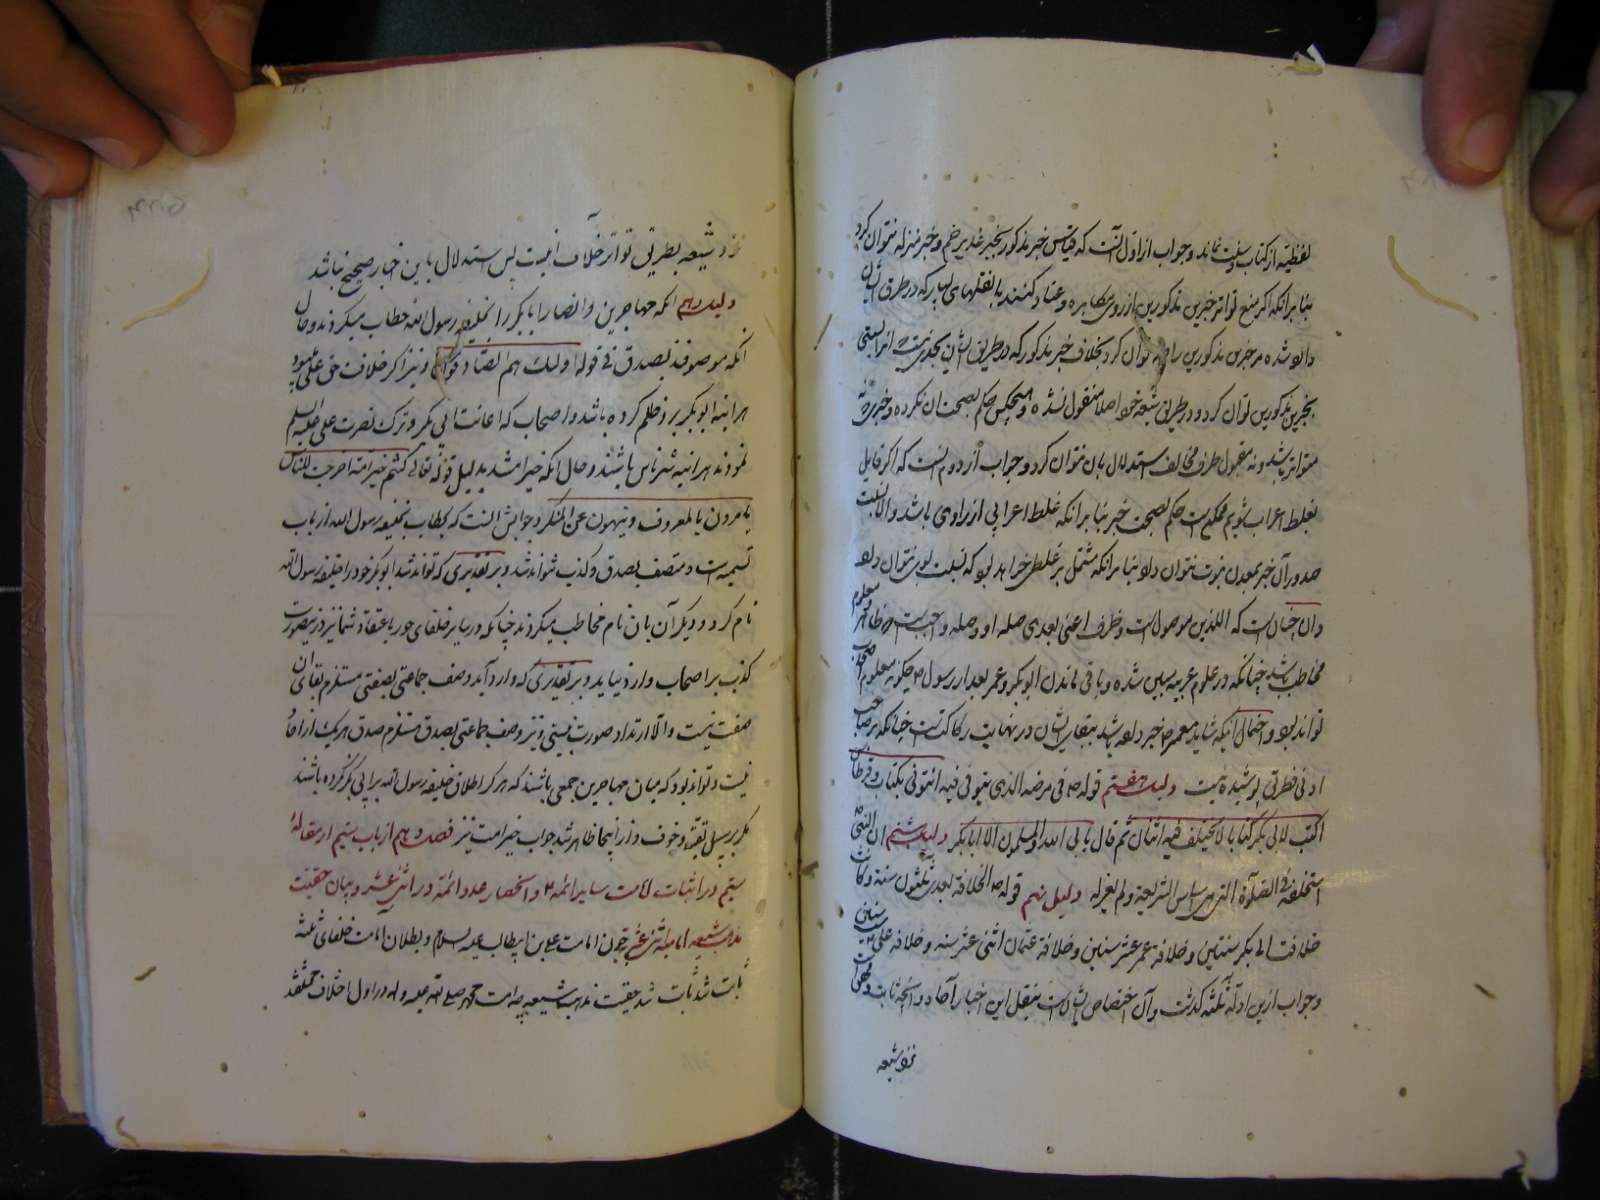 لفظیه از کتاب و سنت نماند و جواب از اول آنست که قیاس خبر مذکور بخبر غدیر خم و خبر منزله نتوان کرد
بنا بر آنکه اگر منع تواتر خبرین مذکورین از روی مکابره و عناد کنند بالفظهای بسیار که در طرق ایشان
وارد شده مر خبرین مذکورین را نتوان کرد بخلاف خبر مذکور که در طریق ایشان بحدی نیست
بخبرین مذکورین توان کرد و در طریق شیعه خود اصلا منقول نشده و هیچکس حکم بصحت آن نکرده و خبری که
متواتر نباشد و نه مقبول طرف مخالف استدلال بان نتوان کرد و جواب از دوم آنست که اگر قایل
بغلط اعراب شویم ممکن است حکم بصحت خبر بنا بر آنکه غلط اعرابی از راوی باشد و الا نسبت
صدور آن خبر بمعدن نبوت نتوان داد بنا بر آنکه مشتمل بر غلطی خواهد بود که نسبت بوی نتوان داد
و آن چنان است که اللذین موصول است و ظرف اعنی بعدی صله او و صله واجب است که ظاهر و معلوم
مخاطب باشد چنانکه در علوم عربیه مبین شده و باقی ماندن ابوبکر و عمر بعد از رسول ص چگونه معلوم صحابه
تواند بود و احتمال آنکه شاید معصوم خبر داده باشد ببقای ایشان در نهایت رکاکت است چنانکه بر صاحب
ادنی فطرتی پوشیده نیست دلیل هفتم قوله ص فی مرضه الذی یتوفی فیه ائتونی بکتاب و قرطاس
اکتب لابی بکر کتابا لا یختلف فیه اثنان ثم قال یابی الله و المسلمون الا ابابکر دلیل هشتم ان النبی ص
استخلفه فی الصلوة التی هی اساس الشریعة و لم یعزله دلیل نهم قوله ص الخلافة بعدی ثلثون سنة و کانت
خلافت ابی بکر سنتین و خلافة عمر عشر سنین و خلافة عثمان اثنی عشر سنه و خلافه علی ست سنین
و جواب ازین ادله ثلثه گذشت و آن اختصاص ایشان است بنقل این اخبار آحاد و آنچه ثابت
نزد شیعه
نزد شیعه بطریق تواتر خلاف اینست پس استدلال باین اخبار صحیح نباشد
دلیل دهم آنکه مهاجرین و انصار ابابکر را بخلیفه رسول الله خطاب میکردند و حال
آنکه موصوفند بصدق فی قوله اولئک هم الصادقون و نیز اگر خلافت حق علی بود
هر آینه ابوبکر برو ظلم کرده باشد و اصحاب که اعانت ابی بکر و ترک نصرت علی علیه السلم
نمودند هر آینه شر ناس باشند و حال آنکه خیر امتند بدلیل قوله تعالی کنتم خیر امة اخرجت للناس
یامرون بالمعروف و ینهون عن المنکر و جوابش آنست که خطاب بخلیفه رسول الله از باب
تسمیه است و متصف بصدق و کذب نتواند شد و بر تقدیری که تواند شد ابوبکر خود را خلیفه رسول الله
نام کرد و دیگر آن بان نام مخاطب میکردند چنانکه در سایر خلفای جور باعتقاد شما نیز درینصورت
کذب بر اصحاب وارد نیاید و بر تقدیری که وارد آید وصف جماعتی بصفتی مستلزم بقای آن
صفت نیست و الا ارتداد صورت نبستی و نیز وصف جماعتی بصدق مستلزم صدق هر یک از آحاد
نیست و تواند بود که میان مهاجرین جمعی باشند که هرگز اطلاق خلیفه رسول الله بر ابی بکر نکرده باشند
مگر بر سبیل تقیه و خوف و از اینجا ظاهر شد جواب خیر امت نیز فصل دهم از باب سیم از مقاله
سیم در اثبات امامت سایر ائمه ع و انحصار عدد ائمه در اثنی عشر و بیان حقیت
مذهب شیعه امامیه اثنی عشریه چون امامت علی بن ابیطالب علیه السلام و بطلان امامت خلفای ثلثه
ثابت شد ثابت شد حقیت مذهب شیعه چه امت محمد صلی الله علیه و اله در اول اختلاف